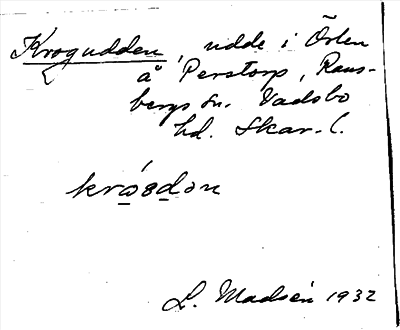 Krogudden, udde i Örlen
å Perstorp, Rans-
bergs sn. Vadsbo
hd. Skar. l.
krósdon
L. Madsén 1932